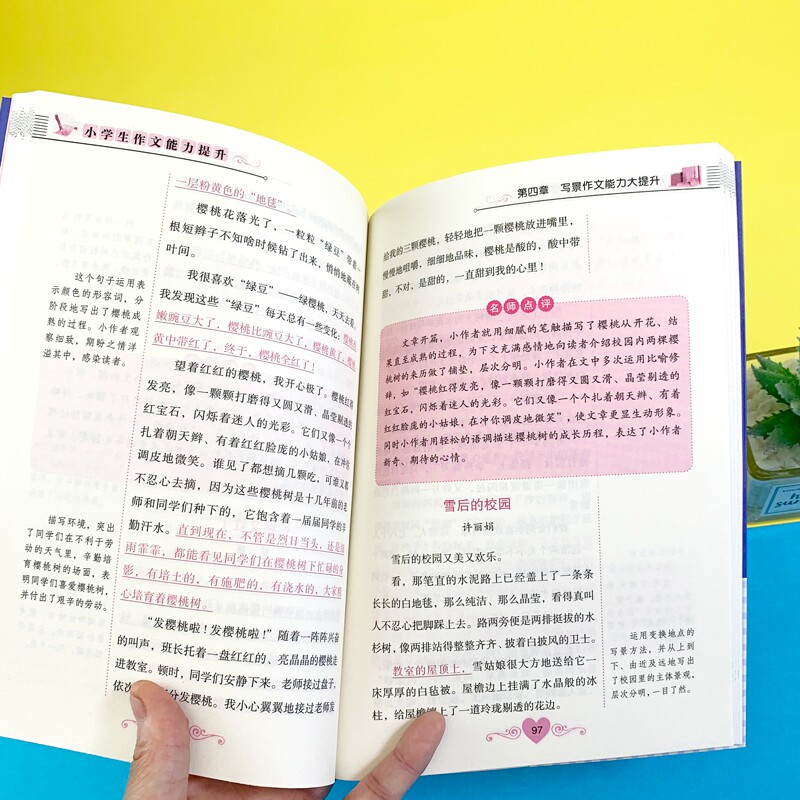 小学生作文能力提升
一层粉黄色的“地毯”
樱桃花落光了，一粒粒“绿豆”带着一
根短辫子不知啥时候钻了出来，悄悄地藏在树
叶间。
我很喜欢“绿豆”——绿樱桃，天天去看。
我发现这些“绿豆”每天总有一些变化：樱桃比
嫩豌豆大了，樱桃比豌豆大了，樱桃黄了，樱桃
黄中带红了，终于，樱桃全红了！
望着红红的樱桃，我开心极了。樱桃红得
发亮，像一颗颗打磨得又圆又滑、晶莹剔透的
红宝石，闪烁着迷人的光彩。它们又像一个个
扎着朝天辫、有着红红脸庞的小姑娘，在冲你
调皮地微笑。谁见了都想摘几颗吃，可谁又都
不忍心去摘，因为这些樱桃树是十几年前的老
师和同学们种下的，它饱含着一届届同学的辛
勤汗水。直到现在，不管是烈日当头，还是细
雨霏霏，都能看见同学们在樱桃树下忙碌的身
影，有培土的，有施肥的，有浇水的，大家精
心培育着樱桃树。
“发樱桃啦！发樱桃啦！”随着一阵阵兴奋
的叫声，班长托着一盘红红的、亮晶晶的樱桃走
进教室。顿时，同学们安静下来。老师接过盘子，
依次
分发樱桃。我小心翼翼地接过老师发
这个句子运用表
示颜色的形容词，分
阶段地写出了樱桃成
熟的过程。小作者观
察细致，期盼之情洋
溢其中，感染读者。
描写环境，突出
了同学们在不利于劳
动的天气里，辛勤培
育樱桃树的场面，表
明同学们喜爱樱桃树，
并付出了艰辛的劳动。
第四章 写景作文能力大提升
给我的三颗樱桃，轻轻地把一颗樱桃放进嘴里，
慢慢地咀嚼，细细地品味，樱桃是酸的，酸中带
甜，不对，是甜的，一直甜到我的心里！
名师点评
文章开篇，小作者就用细腻的笔触描写了樱桃从开花、结
果直至成熟的过程，为下文充满感情地向读者介绍校园内两棵樱
桃树的来历做了铺垫，层次分明。小作者在文中多次运用比喻修
辞，如“樱桃红得发亮，像一颗颗打磨得又圆又滑、晶莹剔透的
红宝石，闪烁着迷人的光彩。它们又像一个个扎着朝天辫、有着
红红脸庞的小姑娘，在冲你调皮地微笑”，使文章更显生动形象。
同时小作者用轻松的语调描述樱桃树的成长历程，表达了小作者
新奇、期待的心情。
雪后的校园
许丽娟
雪后的校园又美又欢乐。
看，那笔直的水泥路上已经盖上了一条条
长长的白地毯，那么纯洁、那么晶莹，看得真叫
人不忍心把脚踩上去。路两旁便是两排挺拔的水
杉树，像两排站得整整齐齐、披着白披风的卫士。
教室的屋顶上，雪姑娘很大方地送给它一
床厚厚的白毡被。屋檐边上挂满了水晶般的冰
柱，给屋檐镶上了一道玲珑剔透的花边。
运用变换地点的
写景方法，并从上到
下、由近及远地写出
了校园里的主体景观，
层次分明，一目了然。
97